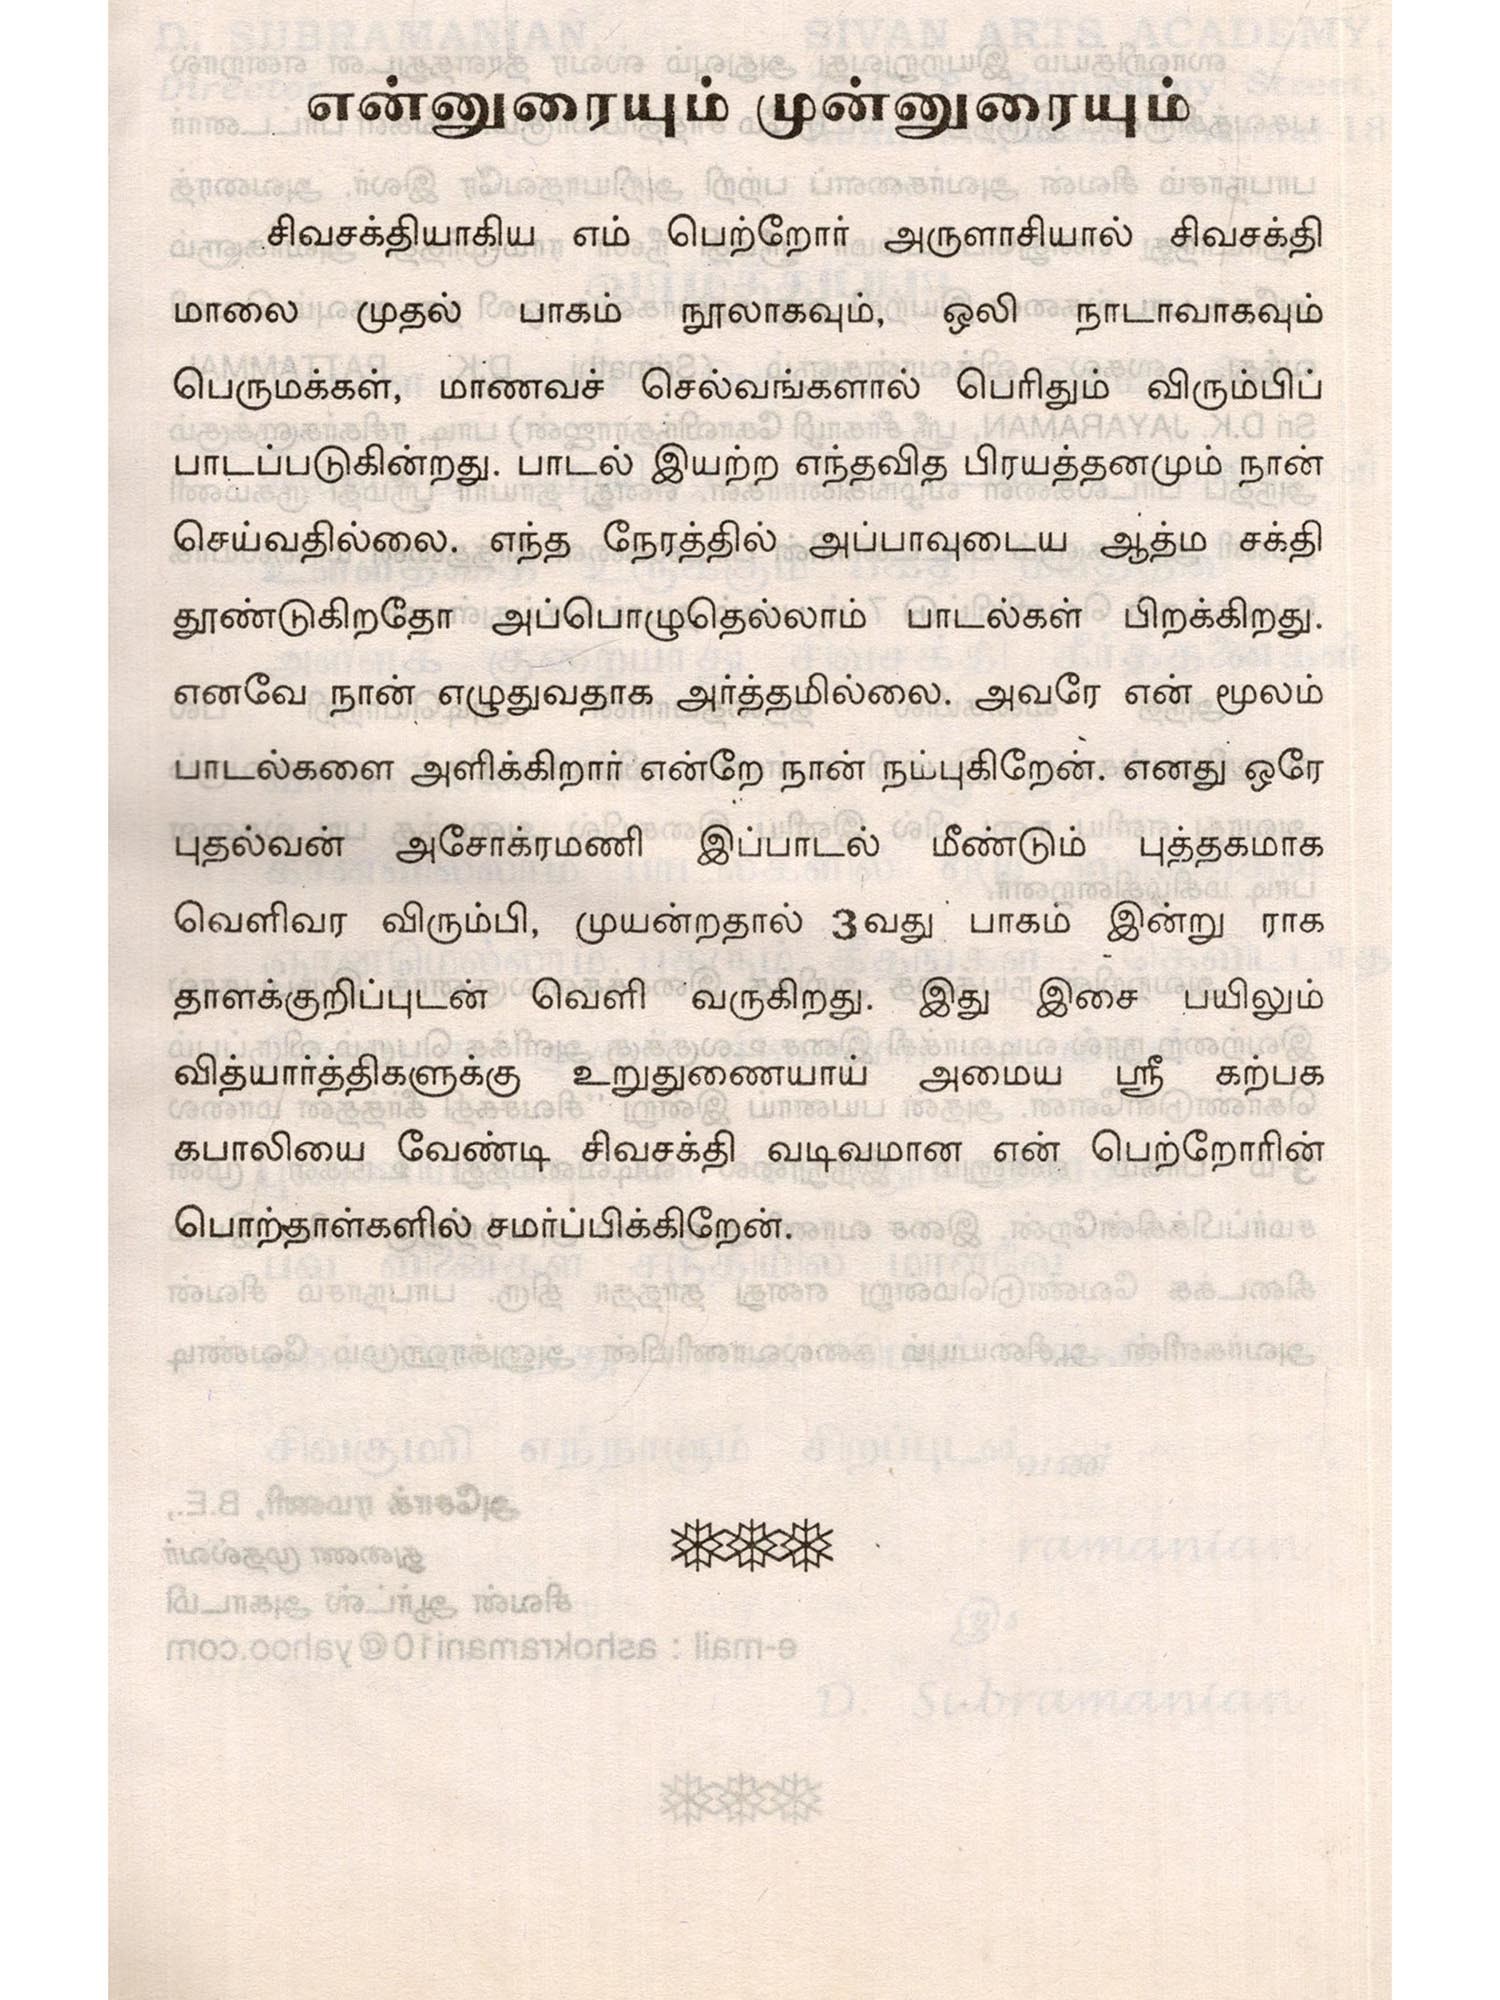 என்னுரையும் முன்னுரையும்
சிவசக்தியாகிய எம் பெற்றோர் அருளாசியால் சிவசக்தி
மாலை முதல் பாகம் நூலாகவும், ஒலி நாடாவாகவும்
பெருமக்கள், மாணவச் செல்வங்களால் பெரிதும் விரும்பிப்
பாடப்படுகின்றது. பாடல் இயற்ற எந்தவித பிரயத்தனமும் நான்
செய்வதில்லை. எந்த நேரத்தில் அப்பாவுடைய ஆத்ம சக்தி
தூண்டுகிறதோ அப்பொழுதெல்லாம் பாடல்கள் பிறக்கிறது.
எனவே நான் எழுதுவதாக அர்த்தமில்லை. அவரே என் மூலம்
பாடல்களை அளிக்கிறார் என்றே நான் நம்புகிறேன். எனது ஒரே
புதல்வன் அசோக்ரமணி இப்பாடல் மீண்டும் புத்தகமாக
வெளிவர விரும்பி, முயன்றதால் 3வது பாகம் இன்று ராக
தாளக்குறிப்புடன் வெளி வருகிறது. இது இசை பயிலும்
வித்யார்த்திகளுக்கு உறுதுணையாய் அமைய ஸ்ரீ கற்பக
கபாலியை வேண்டி சிவசக்தி வடிவமான என் பெற்றோரின்
பொற்தாள்களில் சமர்ப்பிக்கிறேன்.